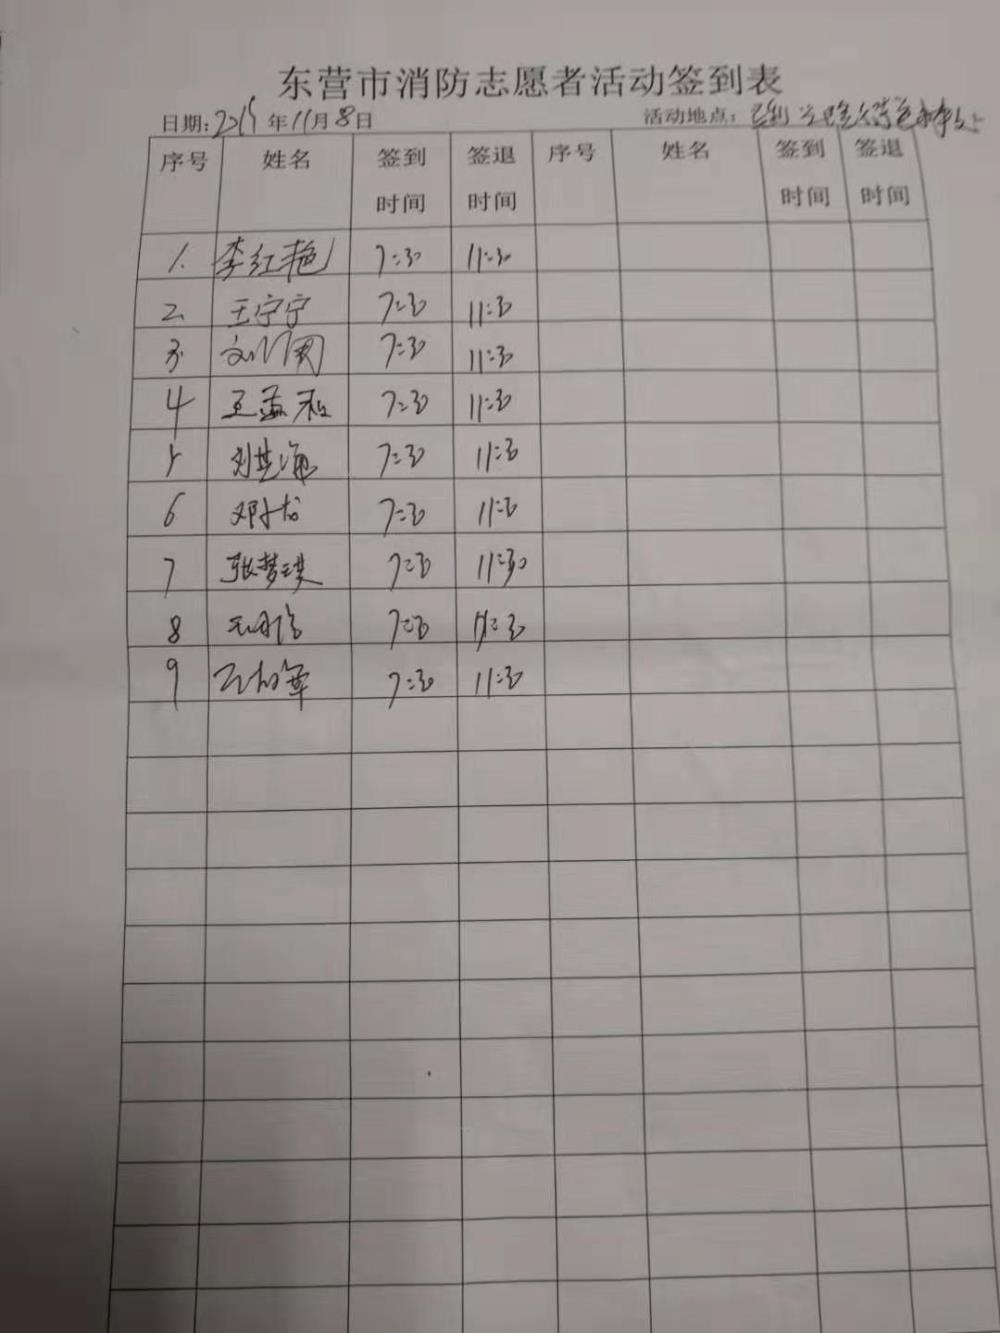 东营市消防志愿者活动签到表
日期: 年11月8日 活动地点:
序号 姓名 签到时间 签退时间 序号 姓名 签到时间 签退时间
1. 李红艳 7:30 11:30
2. 王宁宁 7:30 11:30
3. 7:30 11:30
4 王孟 7:30 11:30
5 刘 7:30 11:30
6 邓 7:30 11:30
7 张梦琪 7:30 11:30
8 7:30 11:30
9 军 7:30 11:30